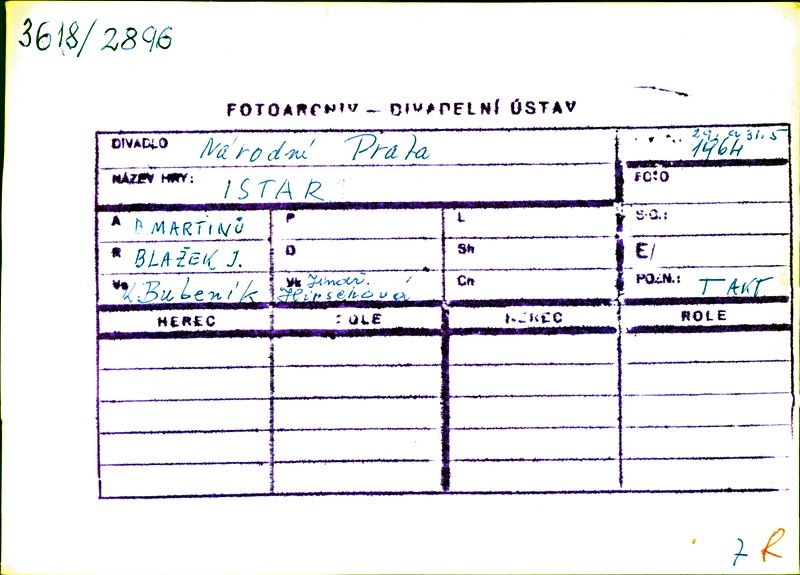 3618/2896
FOTOARCHIV – DIVADELNÍ ÚSTAV
DIVADLO Národní Praha 29. a 31.5
1964
NÁZEV HRY: ISTAR FOTO
A B MARTINŮ P L S.O.:
R BLAŽEK J. D Sh E/
Vs K. Bubeník Vk Jindř. Cn POZN.: TAKT
Hirschová
HEREC ROLE HEREC ROLE
7 R